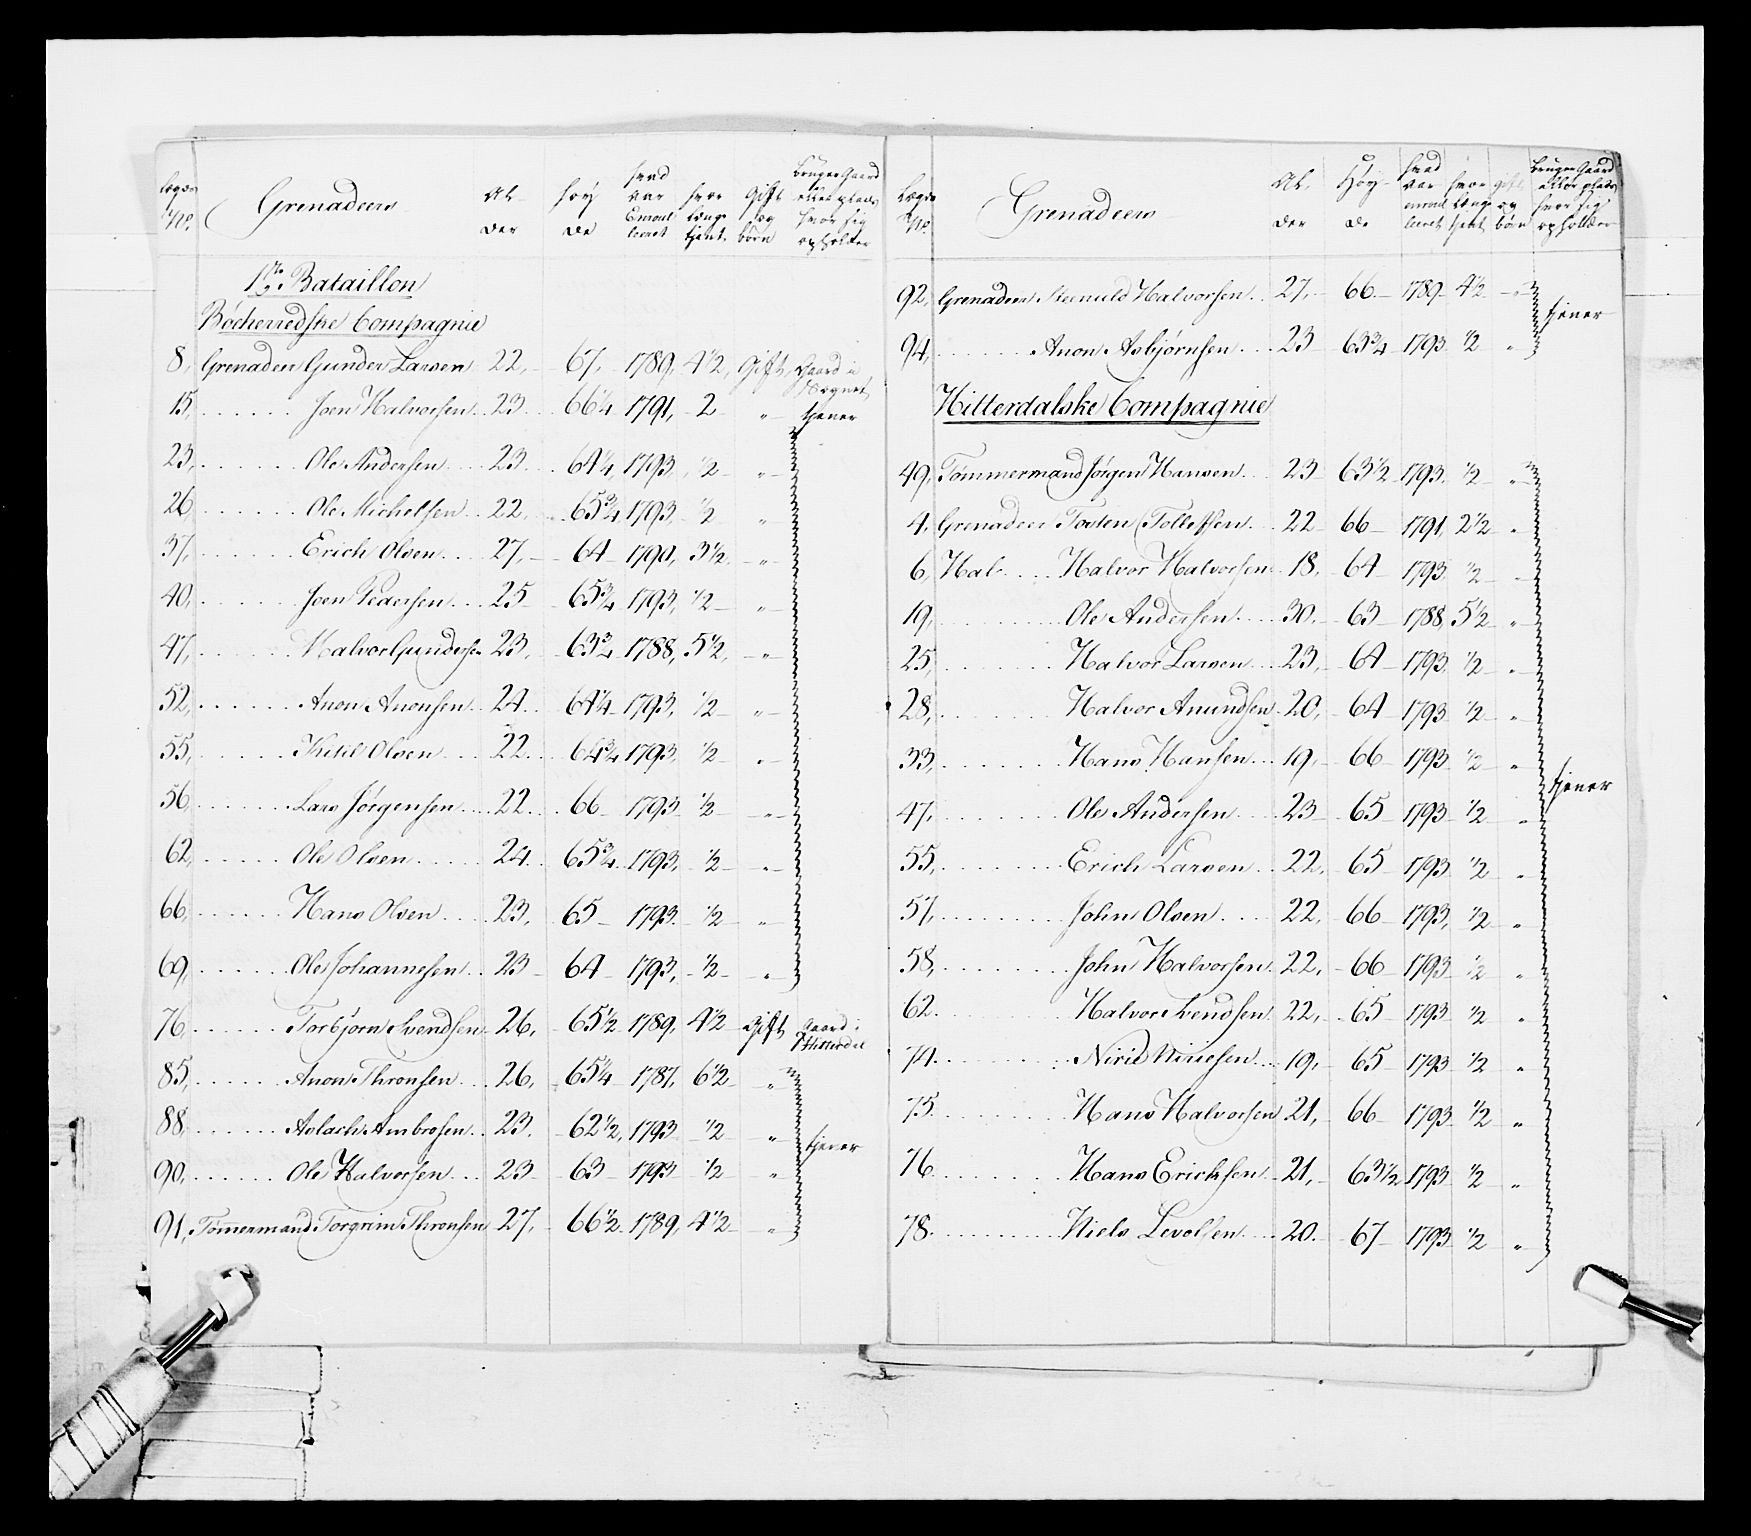 Lægds No. Grenadeers Al-der Høy de hvad var Enroul leeret hvor længe tjent. Gift og børn Bruger Gaard eller plads hvor sig opholder
1ste Bataillon
Böcherredske Compagnie
8, Grenadeer Gunder Larsen 22, 67, 1789, 4½, Gift, Gaard i Sognet
15, Joen Halvorsen 23 66¼ 1791, 2 " tjener
23, Ole Andersen 23 64¼, 1793, ½ "
26, Ole Michelsen 22, 65¾ 1793 ½ "
37, Erich Olsen 27, 64 1790, 3½, "
40, Joen Pedersen 25 65¾ 1793, ½ "
47, Halvor Gundersen 23, 63¾ 1788, 5½, "
52, Anon Anonsen 24 64¼ 1793, ½ "
55, Kittil Olsen 22 64¾ 1793, ½ "
56, Lars Jörgensen 22 66 1793 ½ "
62, Ole Olsen 24 65¾ 1793, ½ "
66, Hans Olsen 23, 65 1793 ½ "
69, Ole Johannesen 23 64 1793, ½ "
76, Torbjörn Svendsen 26, 65½ 1789, 4½ Gift Gaard i Hitterdal
85, Anon Thronsen 26, 65¼ 1787, 6½ "
88, Aslach Ambrosen 23, 62½, 1793 ½ " tjener
90, Ole Halvorsen 23 63 1793 ½ "
91, Tömmermand Torgrim Thronsen 27, 66½ 1789, 4½ "
Lægds No. Grenadeers Al-der Høy-de hvad var enroul leeret hvor længe tjent gift og børn Bruger Gaard eller plads hvor sig opholder
92, Grenadeer Steenuld Halvorsen 27, 66 1789 4½ "
tjener
94, Anon Asbjørnsen 23 63¾ 1793 ½ "
Hitterdalske Compagnie
49, Tømmermand Jörgen Hansen 23 63½ 1793, ½ "
4, Grenadeer Tosten Tollefsen 22 66 1791, 2½ "
6, Hal- Halvor Halvorsen 18, 64 1793 ½ "
19, Ole Andersen 30, 63 1788, 5½ "
25, Halvor Larsen 23, 64 1793, ½ "
28, Halvor Amundsen 20, 64 1793 ½ "
33, Hans Hansen 19, 66 1793 ½ "
tjener
47, Ole Andersen 23 65 1793 ½ "
55, Erich Larsen 22, 65 1793 ½ "
57, John Olsen 22, 66 1793, ½ "
58, John Halvorsen 22, 66 1793 ½ "
62. Halvor Svendsen 22, 65 1793 ½ "
74. 19, 65 1793 ½ "
75. Hans Halvorsen 21, 66 1793 ½ "
76. Hans Erichsen 21, 63½ 1793 ½ "
78. Niels 20. 67 1793 ½ "